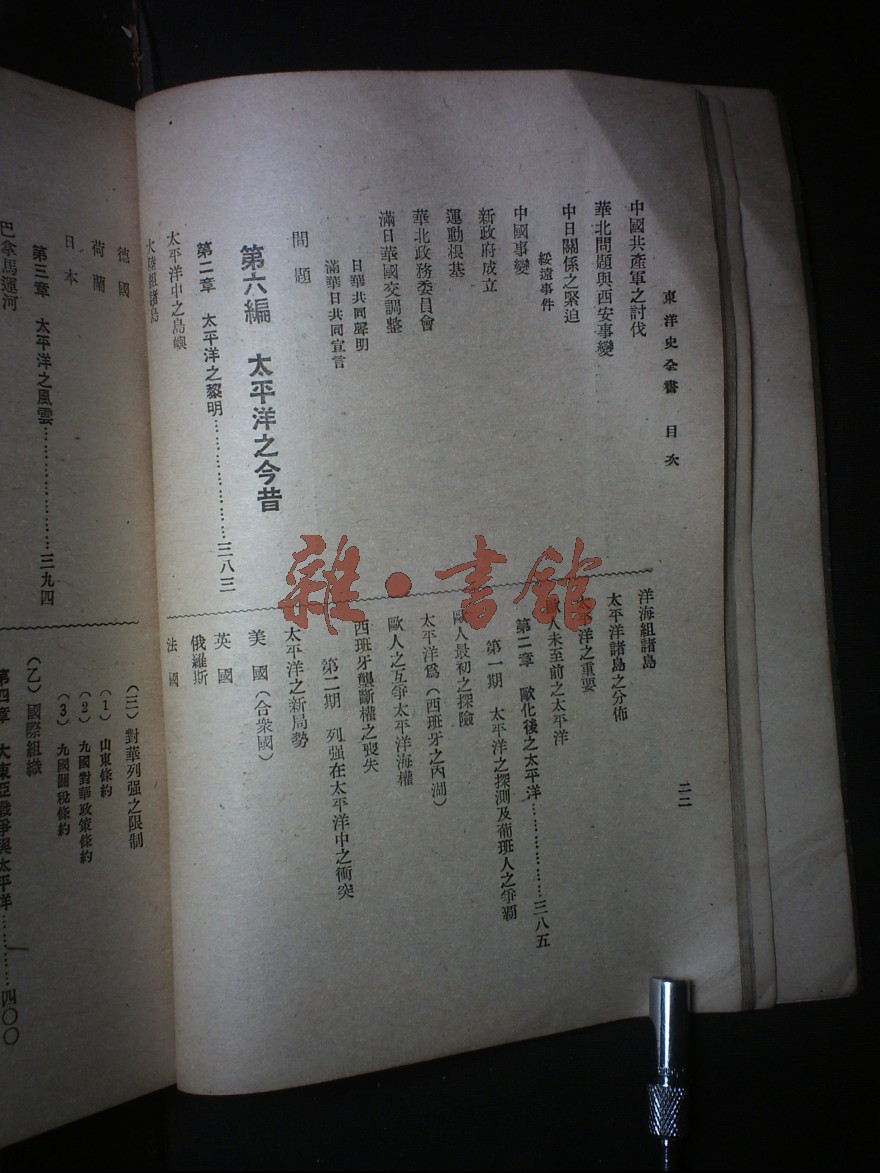 東洋史全書 目次
二二
中國共產軍之討伐
華北問題與西安事變
中日關係之緊迫
綏遠事件
中國事變
新政府成立
運動根基
華北政務委員會
滿日華國交調整
日華共同聲明
滿華日共同宣言
問題
第六編 太平洋之今昔
第一章 太平洋之黎明…………………三八三
太平洋中之島嶼
大陸組諸島
洋海組諸島
太平洋諸島之分佈
太平洋之重要
歐人未至前之太平洋
第二章 歐化後之太平洋…………………三八五
第一期 太平洋之探測及葡班人之爭霸
歐人最初之探險
太平洋爲(西班牙之內湖)
歐人之互爭太平洋海權
西班牙壟斷權之喪失
第二期 列强在太平洋中之衝突
太平洋之新局勢
美國(合衆國)
英國
俄羅斯
法國
德國
荷蘭
日本
第三章 太平洋之風雲…………………三九四
巴拿馬運河
(三)對華列强之限制
(1)山東條約
(2)九國對華政策條約
(3)九國關稅條約
(乙)國際組織
第四章 大東亞戰爭與太平洋…………四〇〇
雜·書館